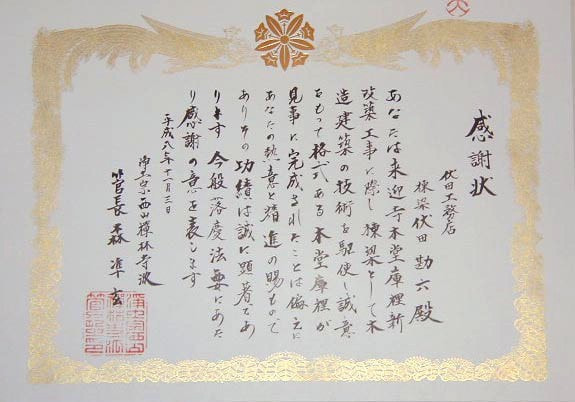 感謝状
伏田工務店
棟梁伏田勘六殿
あなたは来迎寺本堂庫裡新
改築工事に際し棟梁として木
造建築の技術を駆使し誠意
をもって格式ある本堂庫裡が
見事に完成されたことは偏えに
あなたの熱意と精進の賜もので
ありその功績は誠に顕著であ
ります今般落慶法要にあた
り感謝の意を表します
平成八年十一月三日
浄土宗西山禅林寺派
管長森準玄